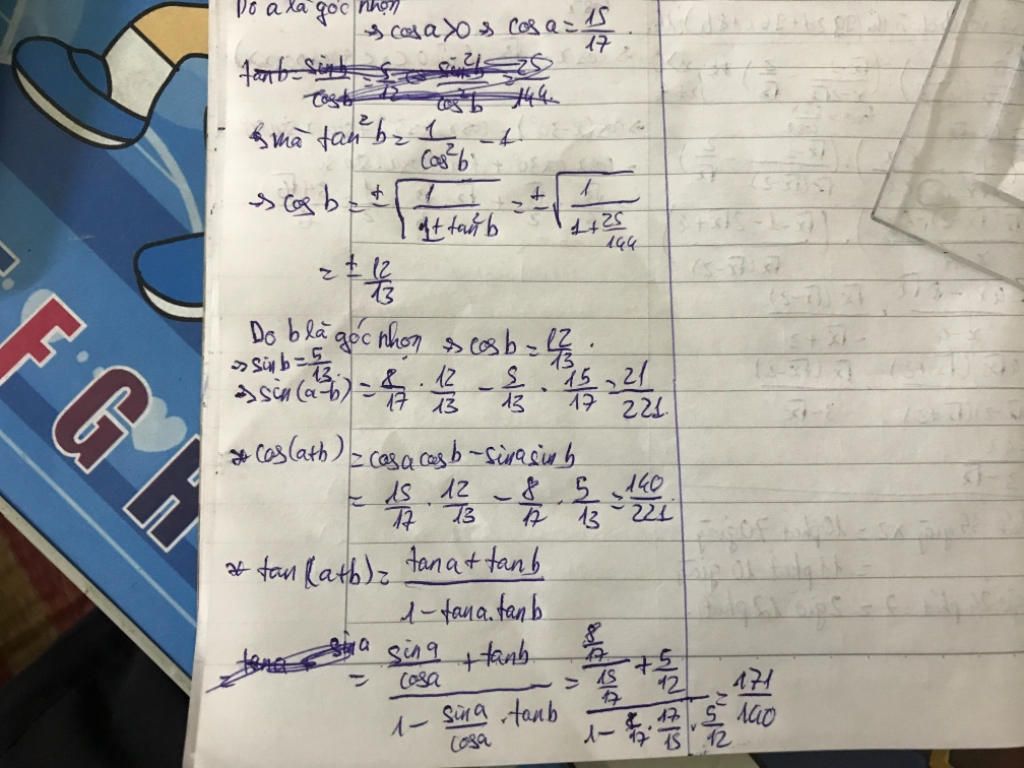 Do a là góc nhọn
→ cosa>0 → cosa = 15/17.
tanb = sinb/cosb = 5/12 → sin²b/cos²b = 25/144
↳ mà tan²b = 1/cos²b - 1
→ cosb = ±√(1/(1+tan²b)) = ±√(1/(1+25/144))
= ±12/13
Do b là góc nhọn → cosb = 12/13.
→ sinb = 5/13.
→ sin(a-b) = 8/17 . 12/13 - 5/13 . 15/17 = 21/221
* cos(a+b) = cosacosb - sinasinb
= 15/17 . 12/13 - 8/17 . 5/13 = 140/221.
* tan(a+b) = (tana + tanb)/(1 - tana.tanb)
tana = sina
= (sina/cosa + tanb)/(1 - sina/cosa . tanb) = ((8/17)/(15/17) + 5/12)/(1 - 8/17 . 17/15 . 5/12) = 171/140
F
G
H